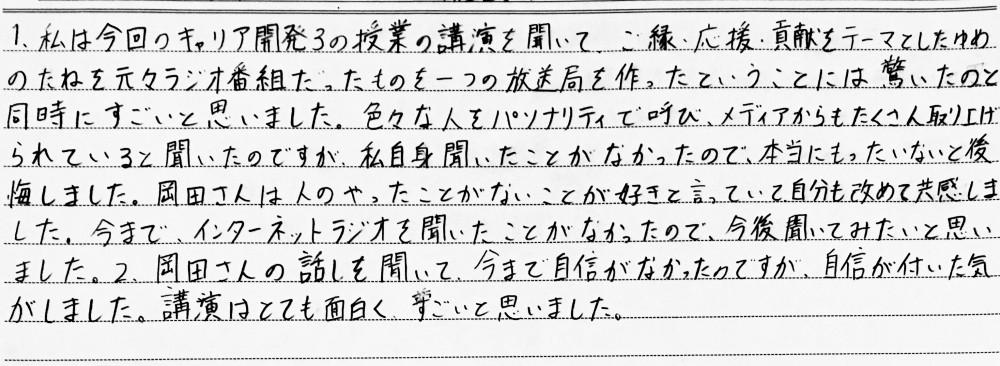 1、私は今回のキャリア開発3の授業の講演を聞いて、ご縁・応援・貢献をテーマとしたゆめ
のたねを元々ラジオ番組だったものを一つの放送局を作ったということには驚いたのと
同時にすごいと思いました。色々な人をパソナリティで呼び、メディアからもたくさん取り上げ
られていると聞いたのですが、私自身聞いたことがなかったので、本当にもったいないと後
悔しました。岡田さんは人のやったことがないことが好きと言っていて自分も改めて共感しま
した。今まで、インターネットラジオを聞いたことがなかったので、今後聞いてみたいと思い
ました。2、岡田さんの話しを聞いて、今まで自信がなかったのですが、自信が付いた気
がしました。講演はとても面白く、すごいと思いました。